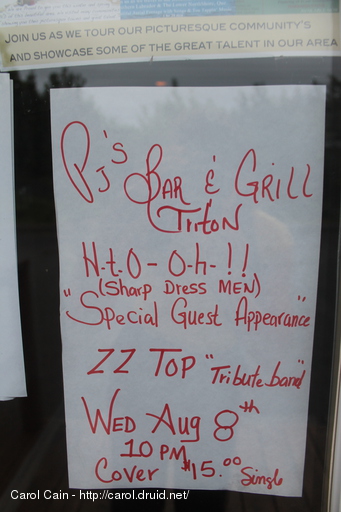 JOIN US AS WE TOUR OUR PICTURESQUE COMMUNITY'S
AND SHOWCASE SOME OF THE GREAT TALENT IN OUR AREA
PJ's BAR & GRILL
TRITON
H-t-O- O-h-!!
(SHARP DRESS MEN)
"Special Guest Appearance"
ZZ TOP "Tribute band"
WED Aug 8th
10 PM
COVER $15.00 Single
Carol Cain - http://carol.druid.net/